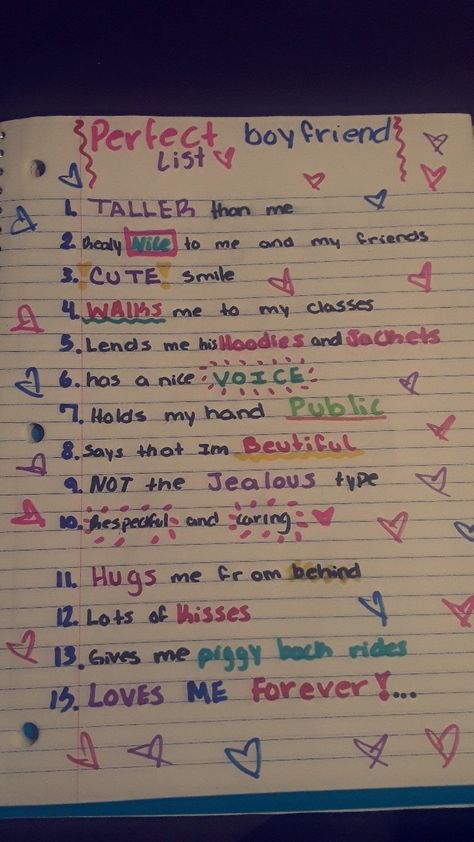 Perfect boyfriend
List
1. TALLER than me
2. Realy Nice to me and my friends
3. CUTE smile
4. WALKS me to my classes
5. Lends me his Hoodies and Jackets
6. has a nice VOICE
7. Holds my hand Public
8. Says that Im Beutiful
9. NOT the Jealous type
10. Respectful and caring
11. Hugs me from behind
12. Lots of Kisses
13. Gives me piggy back rides
15. LOVES ME Forever!...